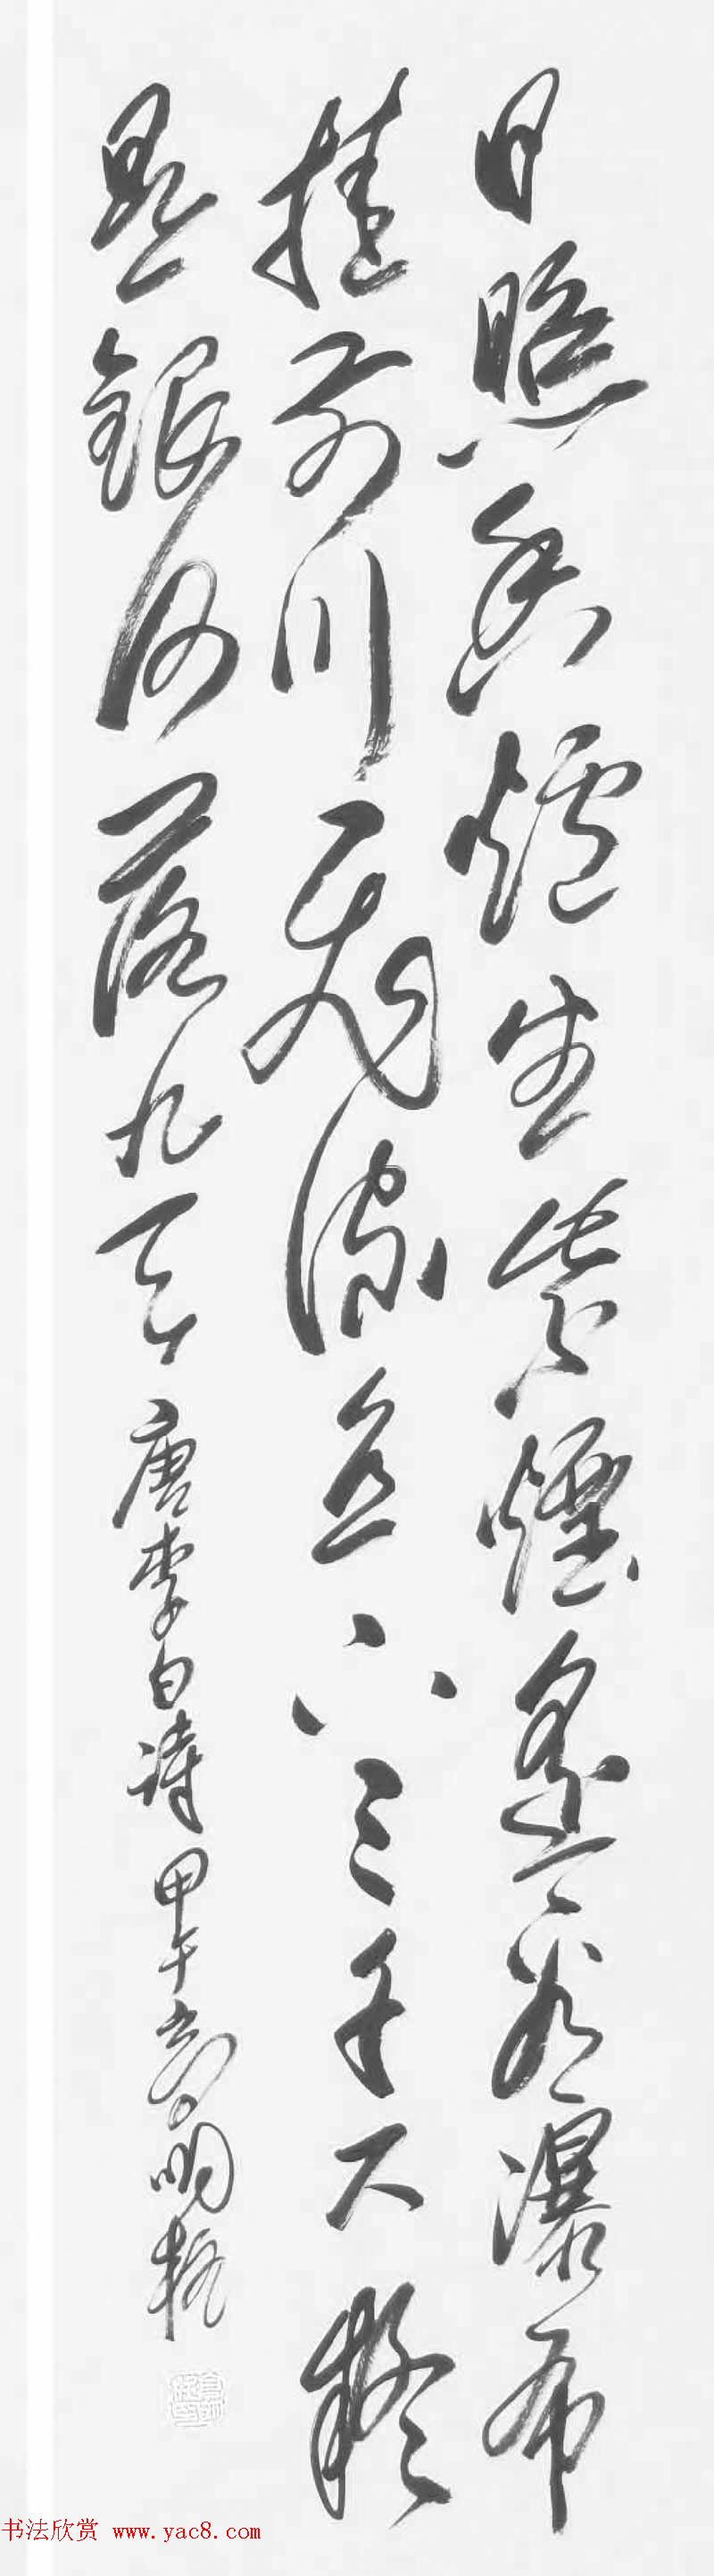 日照香爐生紫煙遙看瀑布
挂前川飛流直下三千尺疑
是銀河落九天 唐李白詩 甲午 高明
书法欣赏 www.yac8.com